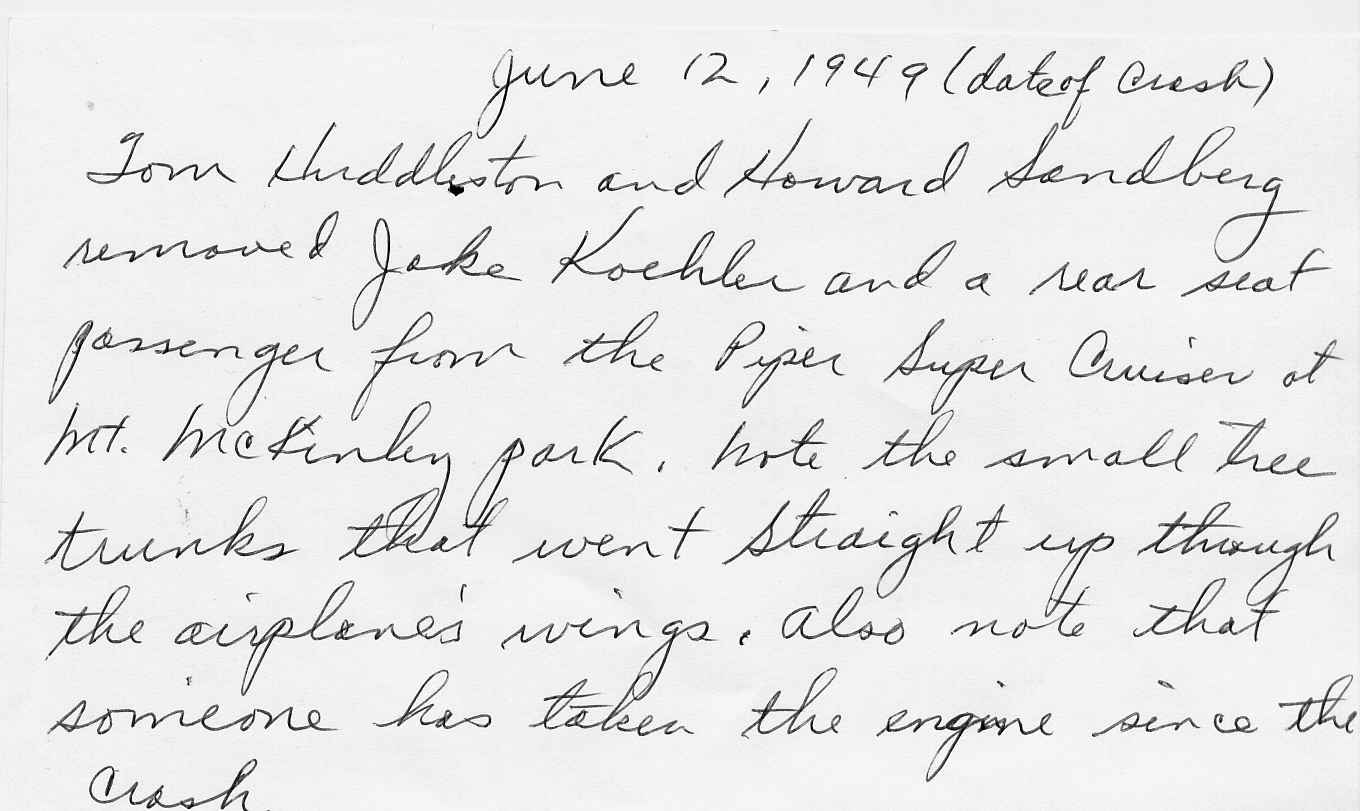 June 12, 1949 (date of Crash)
Tom Huddleston and Howard Sandberg
removed Jake Koehler and a rear seat
passenger from the Piper Super Cruiser at
Mt. McKinley park. Note the small tree
trunks that went straight up through
the airplane's wings. Also note that
someone has taken the engine since the
crash.